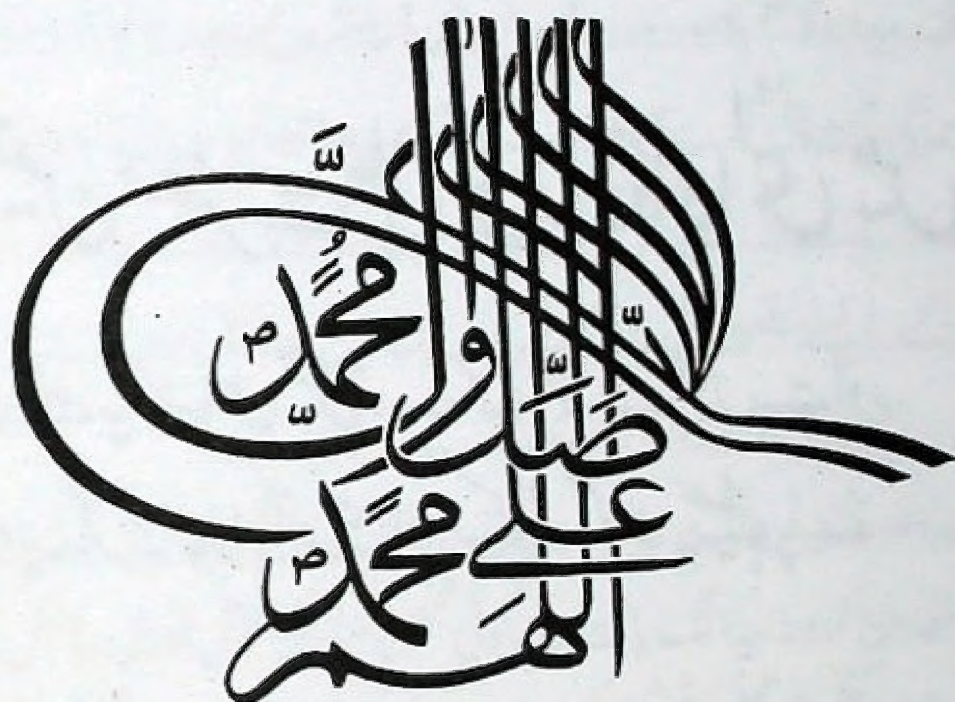 اللهم
صل على محمد
وال محمد